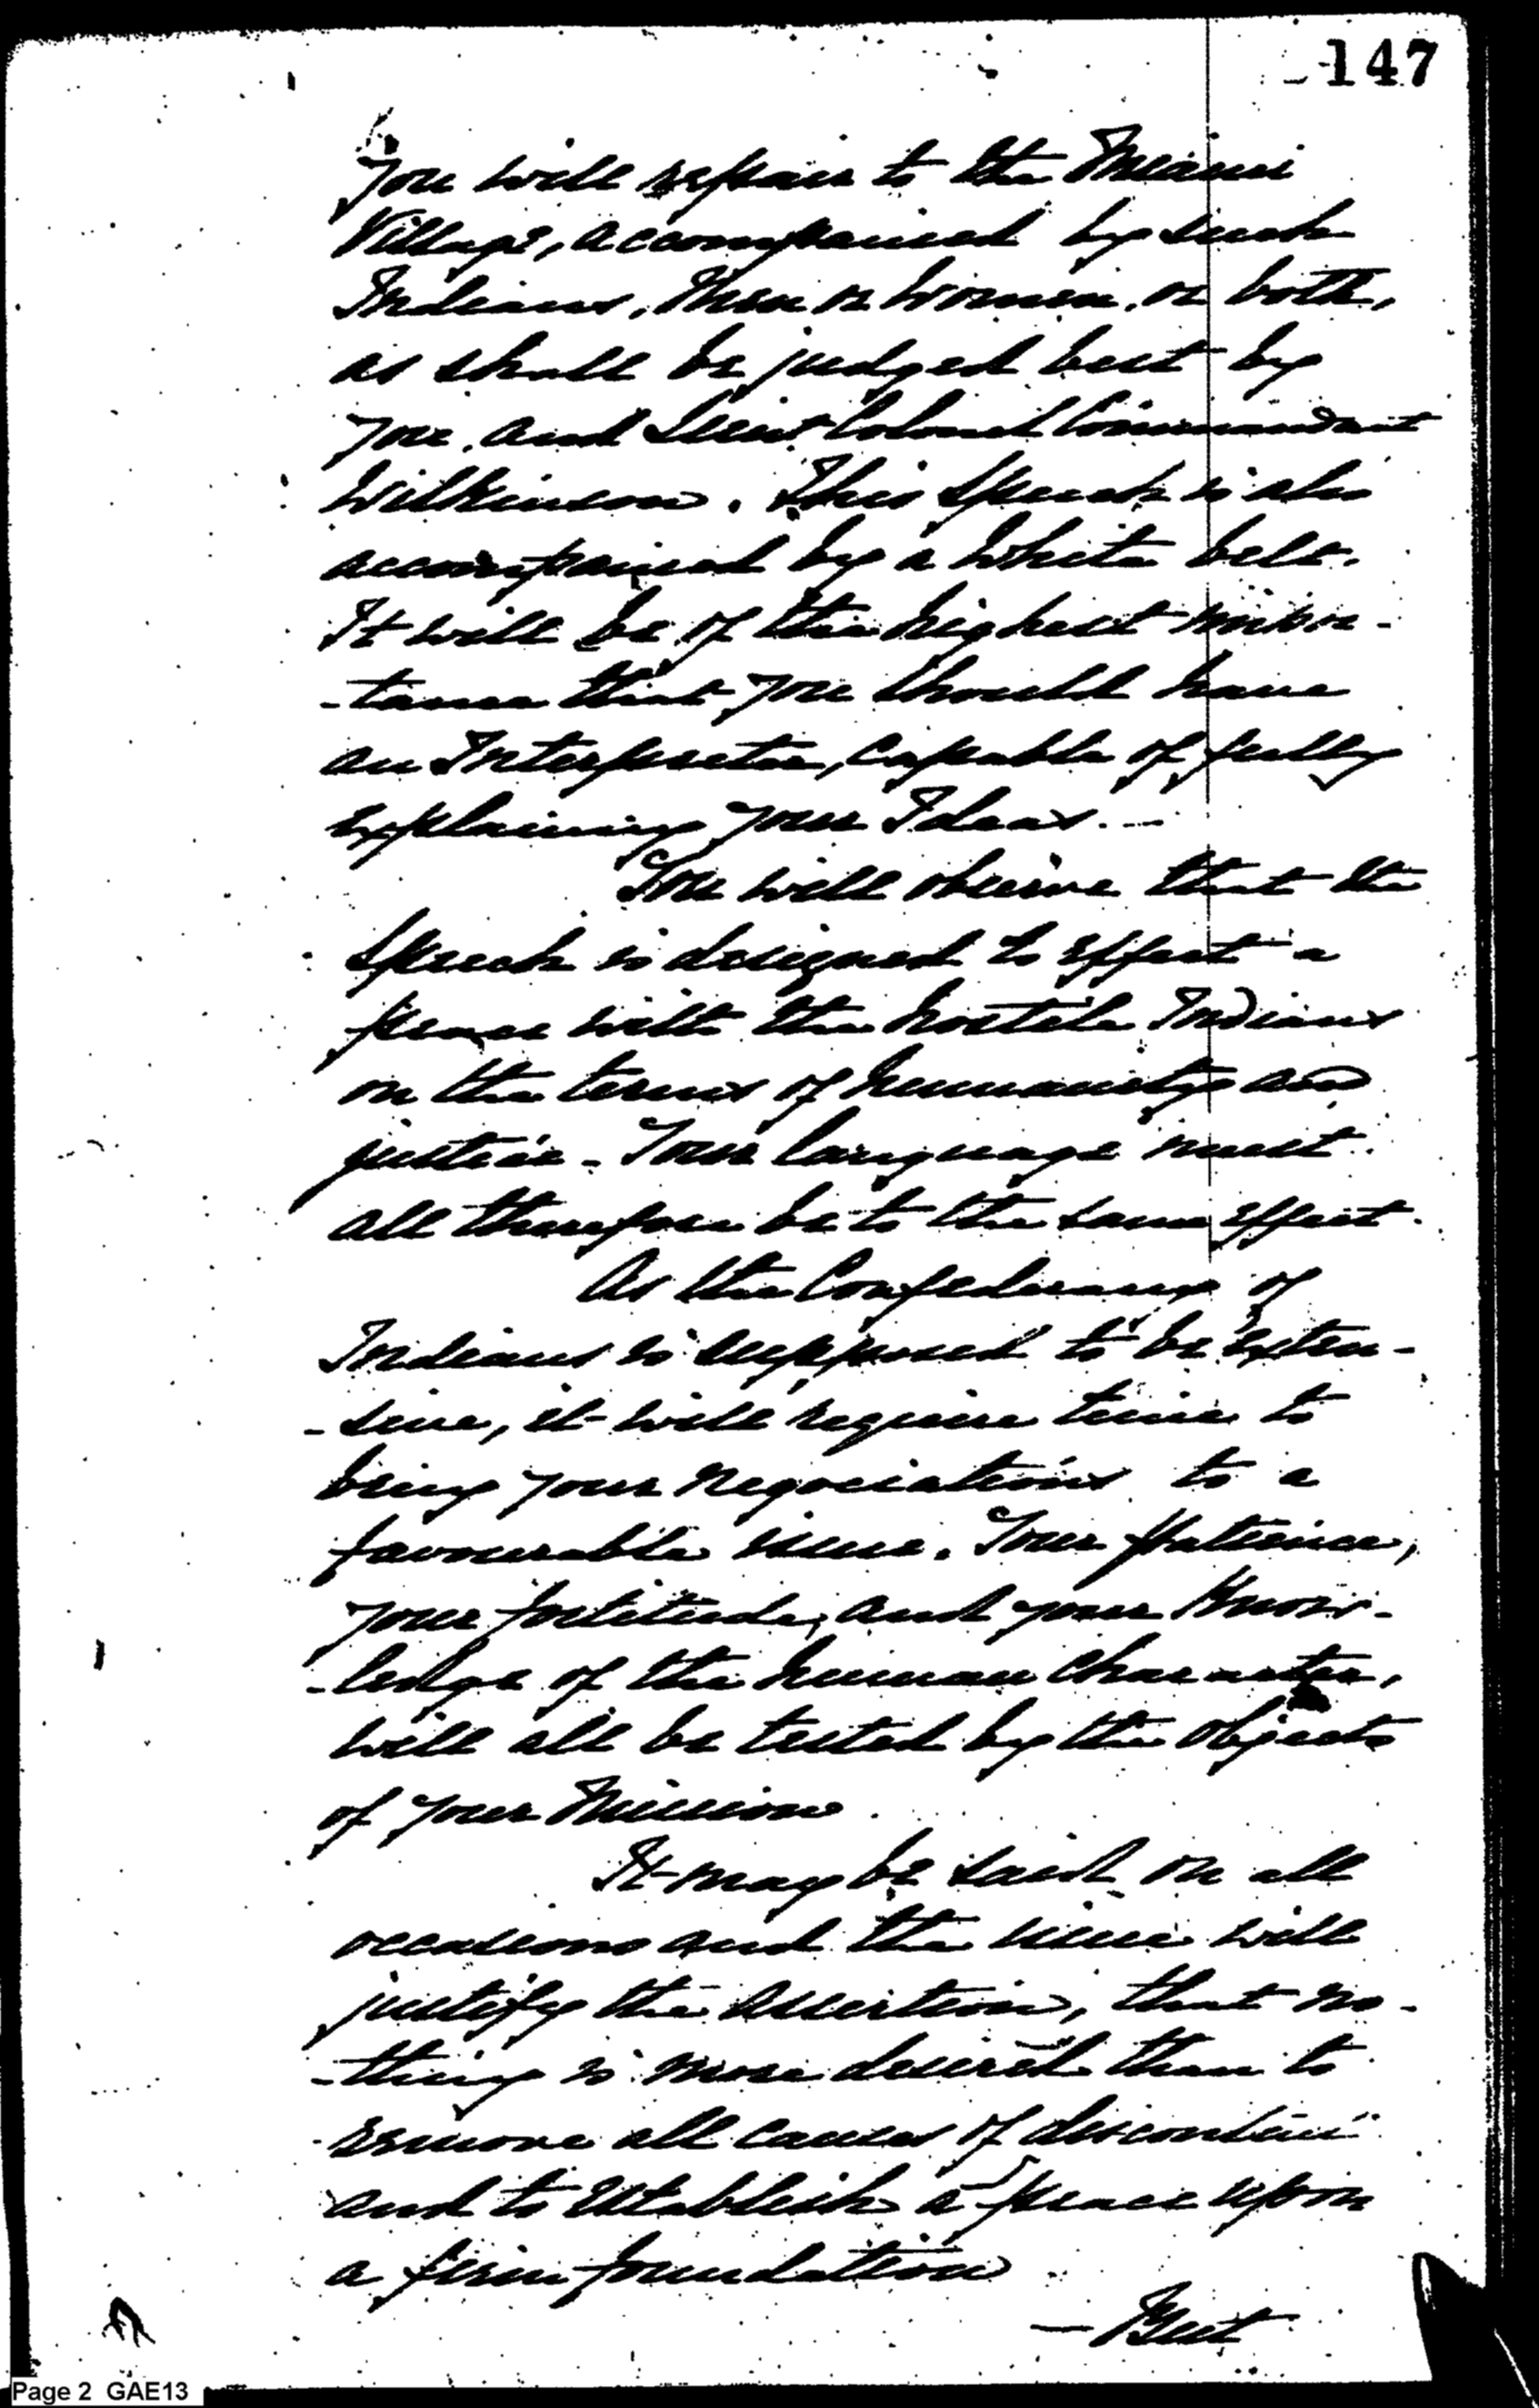 147
You will repair to the Miami
Village, accompanied by such
Indians, Men or Women, or both,
as shall be judged best by
you, and Lieut Colonel Commandant
Wilkinson. This Speech is also
accompanied by a White belt.
It will be of the highest impor-
-tance that you should have
an Interpreter, capable of fully
explaining your Ideas.—
You will observe that the
Speech is designed to effect a
peace with the hostile Indians
on the terms of humanity and
justice - Your language must
all therefore be to the same effect.
As the Confederacy of
Indians is supposed to be exten-
-sive, it will require time to
bring your negociations to a
favourable issue. Your patience,
your fortitude, and your Know-
-ledge of the human character,
will all be tested by the objects
of your Mission.
It may be said on all
occasions and the issue will
justify the assertion, that no-
-thing is more desired than to
remove all causes of discontent
and to establish a peace upon
a firm foundation
— But
Page 2 GAE13